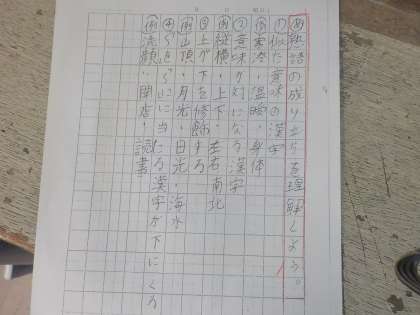 め熟語の成り立ちを理解しよう。
①似た意味の漢字
例寒冷・温暖・身体
②意味が対になる漢字
例縦横・上下・左右・南北
③上が下を修飾する
例山頂・月光・日光・海水
④「を」「に」に当たる漢字が下にくる
例洗顔・開店・読書